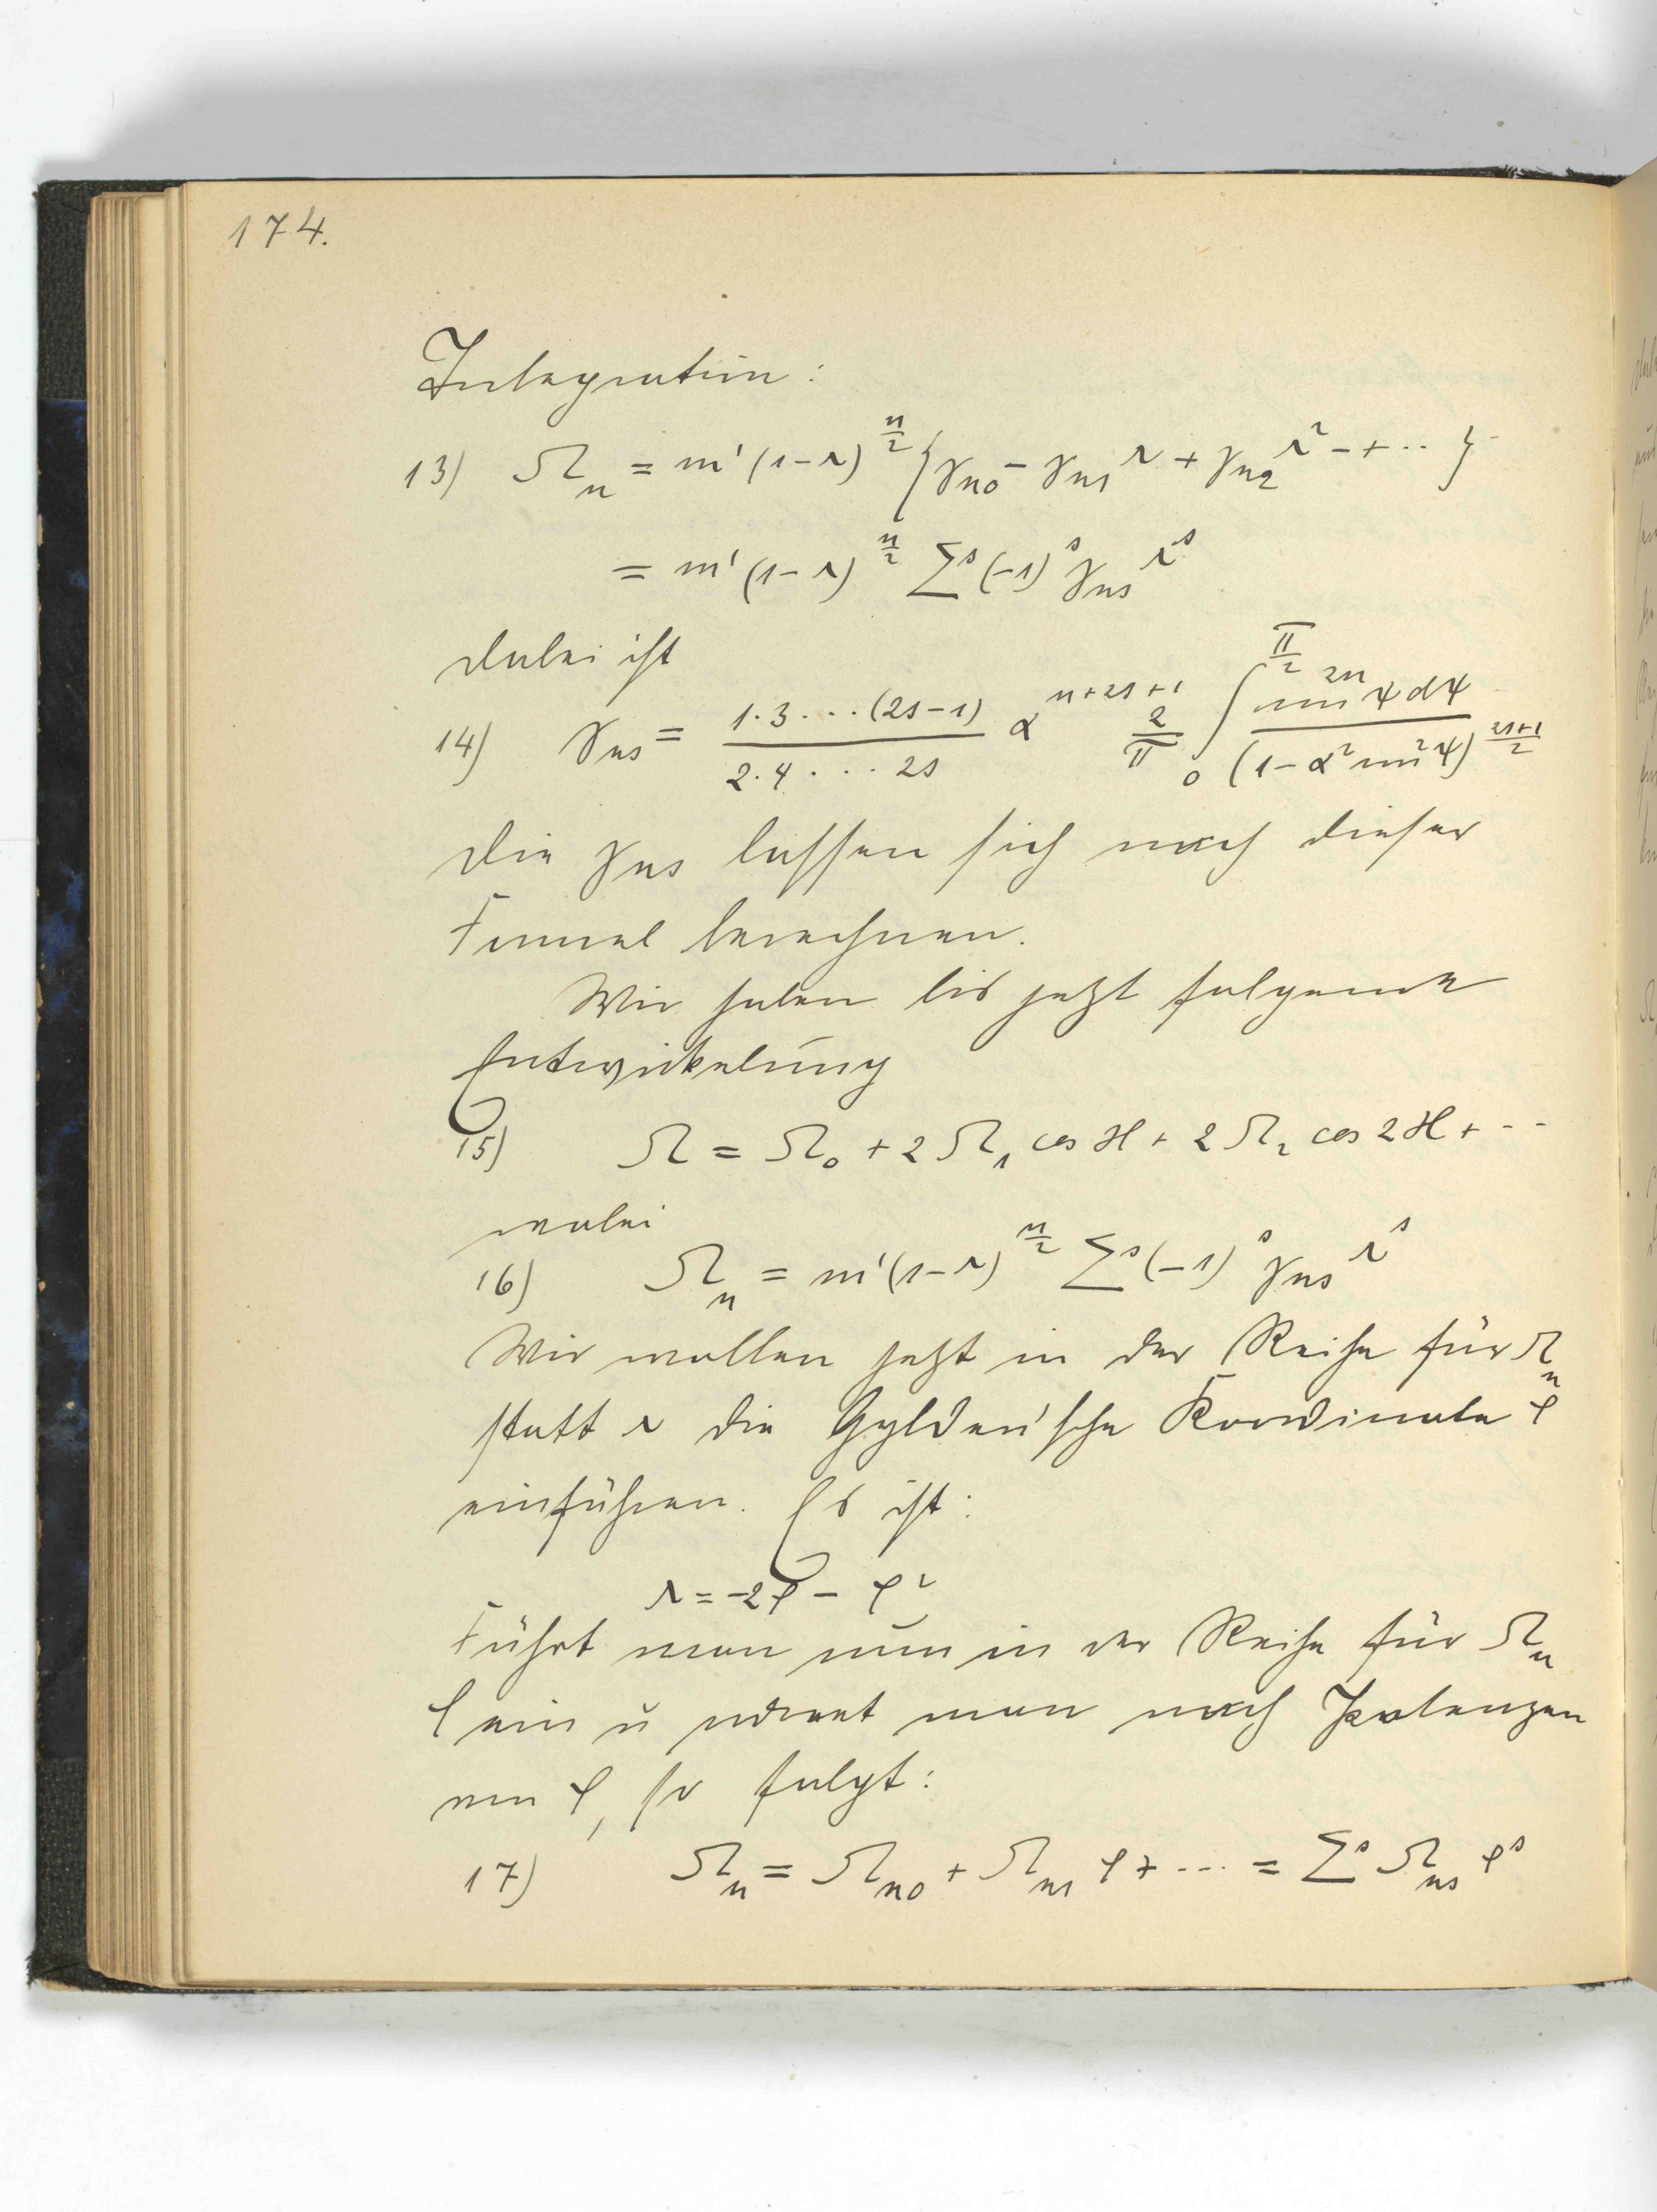 174.
Integration:
13) Ω_n = m'(1-r)^{n/2} {γ_{n0} - γ_{n1} r + γ_{n2} r² - + ·· }
= m'(1-r)^{n/2} Σ^s (-1)^s γ_{ns} r^s
dabei ist
14) γ_{ns} = \frac{1·3···(2s-1)}{2·4···2s} α^{n+2s+1} \frac{2}{π} ∫_0^{π/2} \frac{sin^{2n} ψ dψ}{(1-α² sin² ψ)^{\frac{2s+1}{2}}}
Die γ_{ns} lassen sich nach dieser
Formel berechnen.
Wir haben bis jetzt folgende
Entwickelung
15) Ω = Ω_0 + 2 Ω_1 cos H + 2 Ω_2 cos 2H + ···
wobei
16) Ω_n = m'(1-r)^{n/2} Σ^s (-1)^s γ_{ns} r^s
Wir wollen jetzt in der Reihe für Ω_n
statt r die Gylden'sche Koordinate ρ
einführen. Es ist:
r = -2ρ - ρ²
Führt man nun in der Reihe für Ω_n
ρ ein u ordnet man nach Potenzen
von ρ, so folgt:
17) Ω_n = Ω_{n0} + Ω_{n1} ρ + ··· = Σ^s Ω_{ns} ρ^s